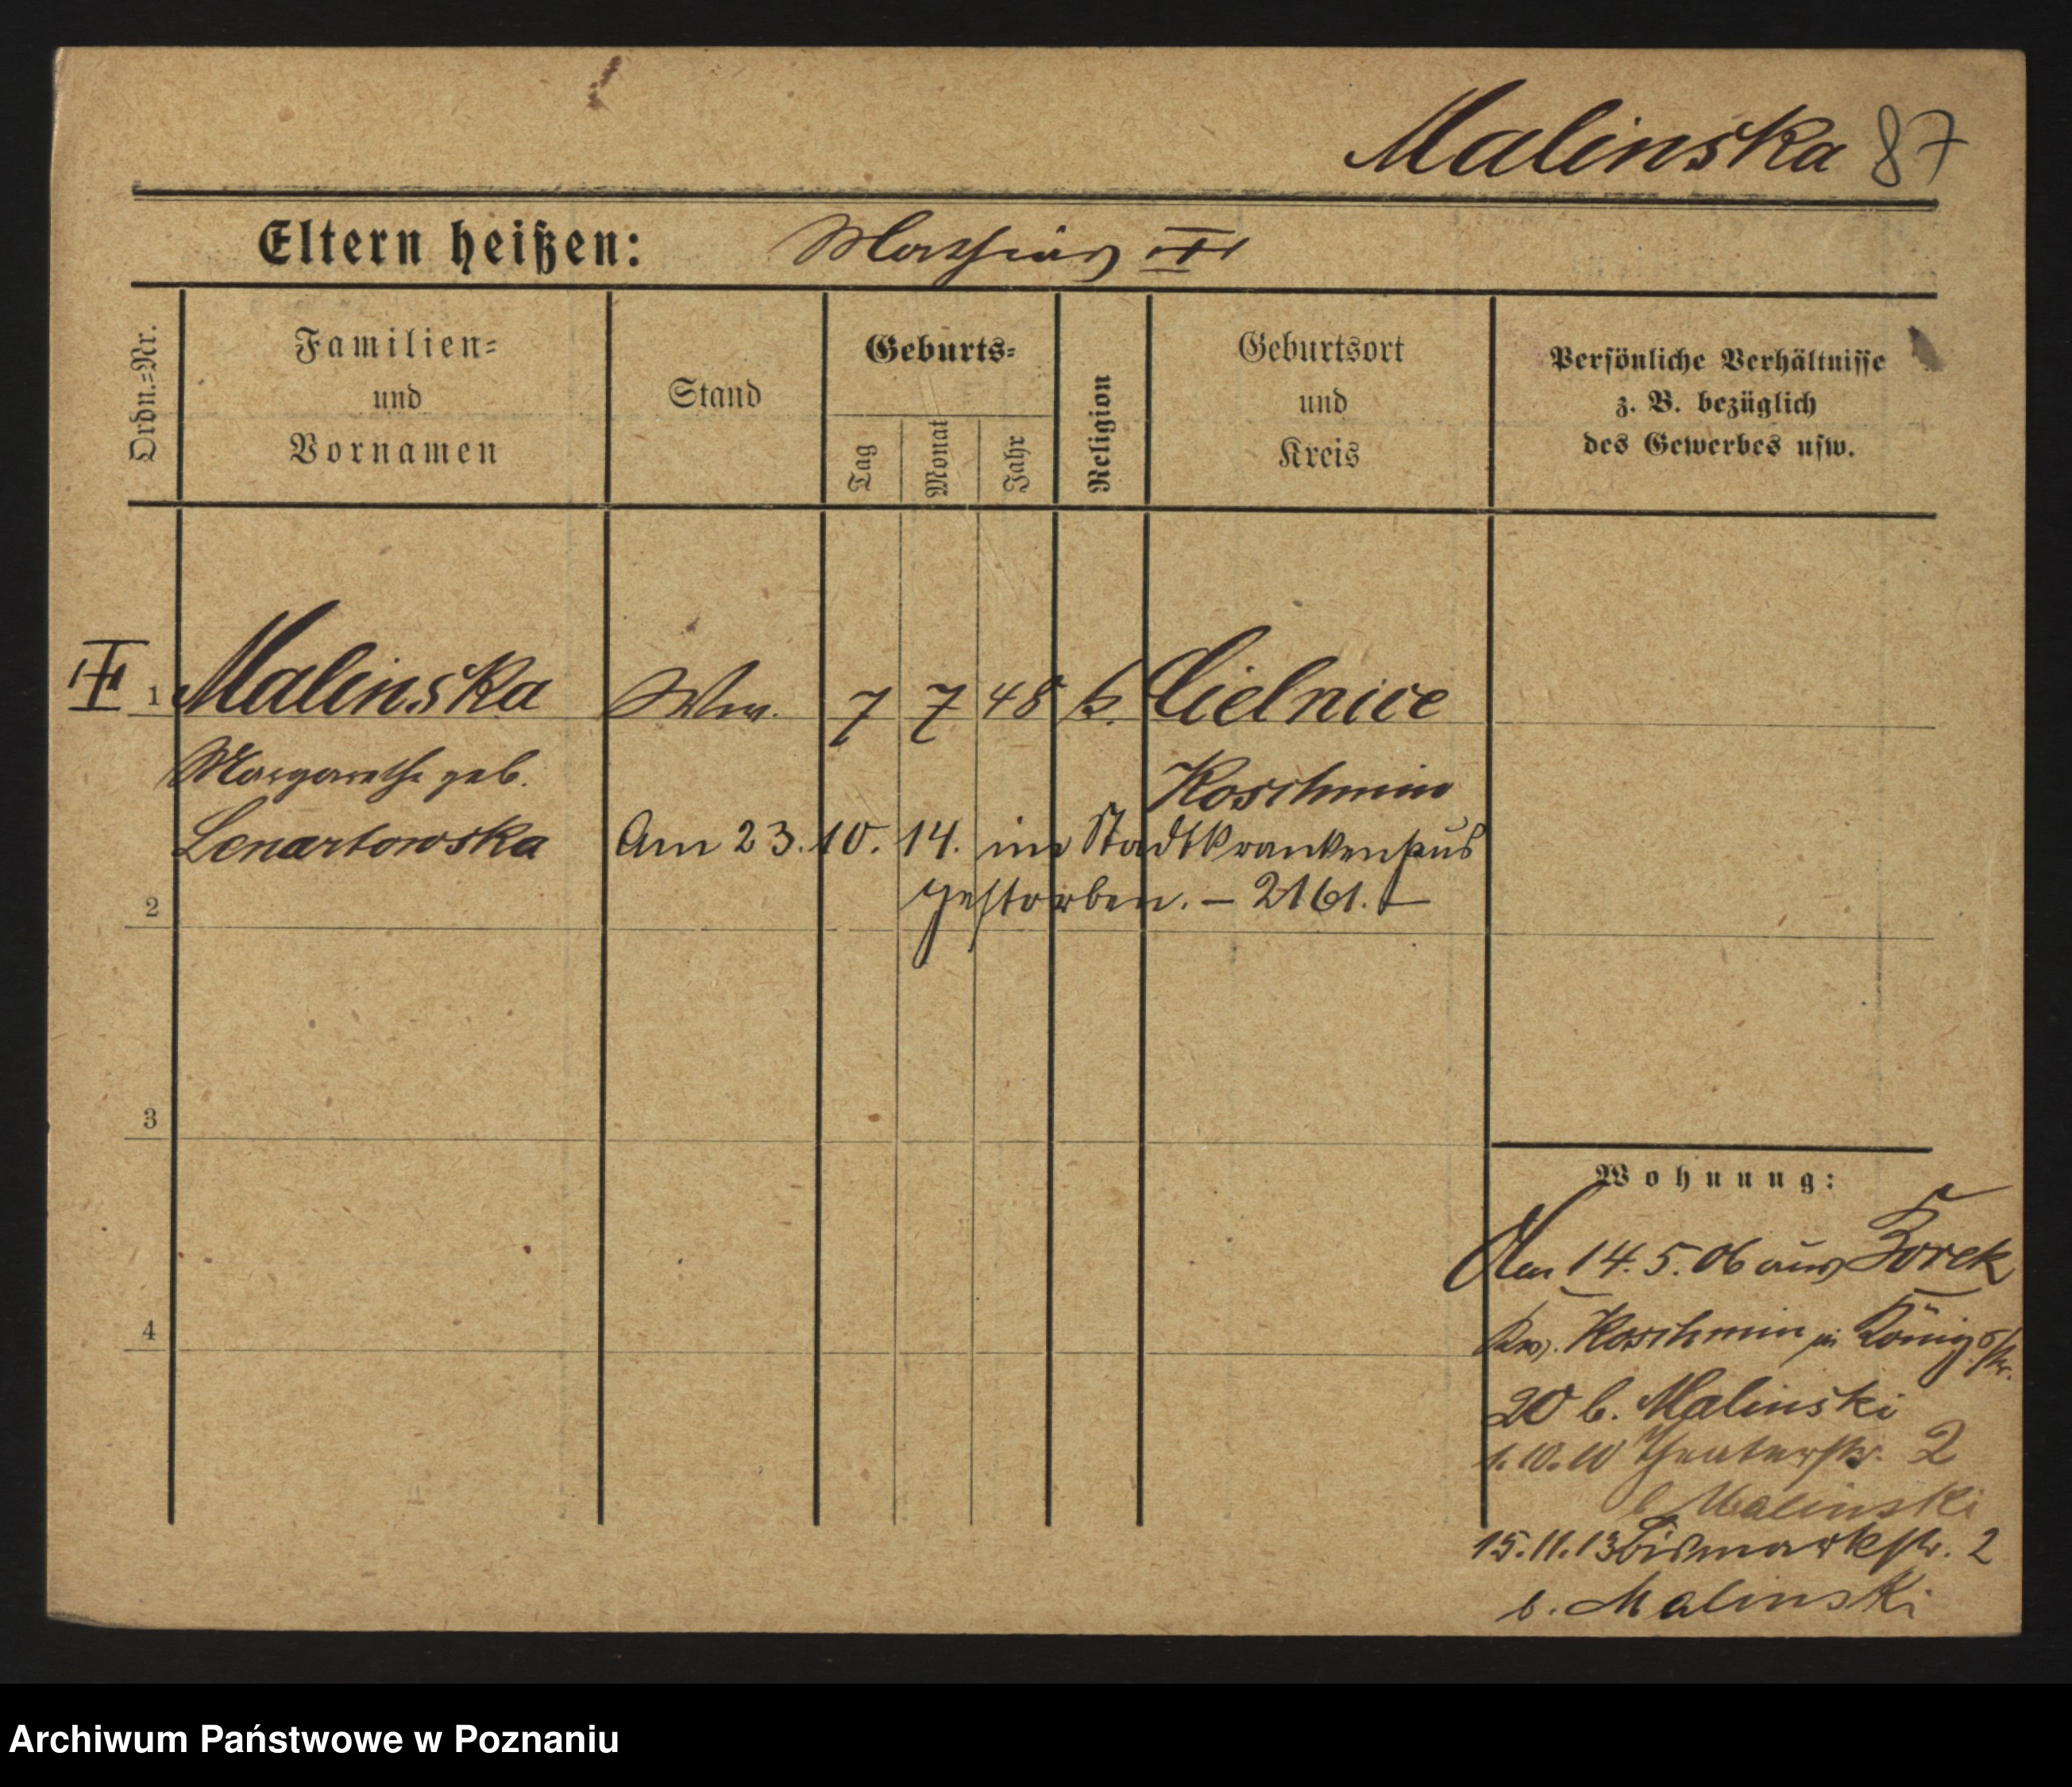 Malinska 87
Eltern heißen: Mathias
Ordn.=Nr.
Familien=
und
Vornamen
Stand
Geburts=
Tag
Monat
Jahr
Religion
Geburtsort
und
Kreis
Persönliche Verhältnisse
z. B. bezüglich
des Gewerbes usw.
1 Malinska Ww. 7 7 48 k. Cielnice
Margarethe geb. Koschmin
Lenartowska Am 23.10.14. im Stadtkrankenhaus
2 gestorben. – 2161. –
3
4
Wohnung:
Am 14.5.06 aus Borek
Krs. Koschmin in Königstr.
20 b. Malinski
1.10.10 Theaterstr. 2
b Malinski
15.11.13 Bismarkstr. 2
b. Malinski
Archiwum Państwowe w Poznaniu